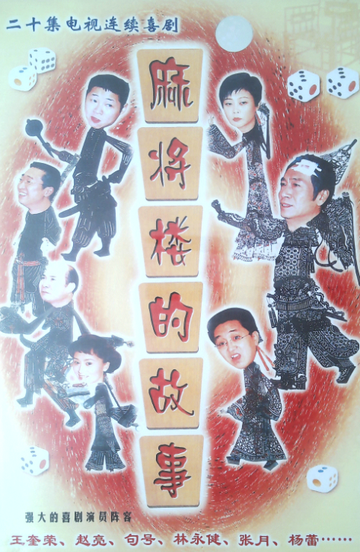 二十集电视连续喜剧
麻将楼的故事
强大的喜剧演员阵容
王奎荣、赵亮、句号、林永健、张月、杨蕾……